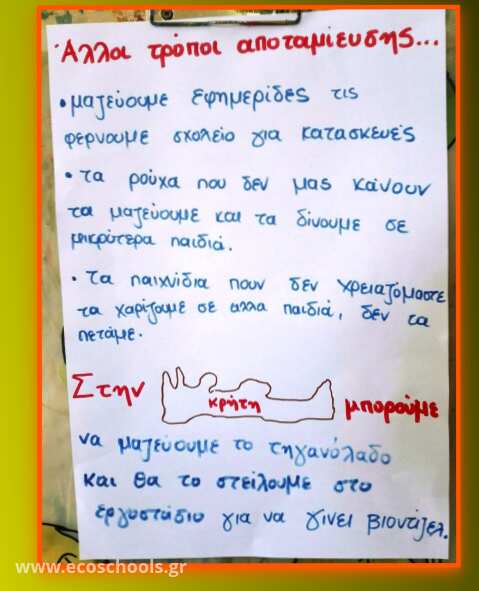 Άλλοι τρόποι αποταμίευσης...
• μαζεύουμε εφημερίδες τις
φερνουμε σχολείο για κατασκευές
• τα ρούχα που δεν μας κάνουν
τα μαζεύουμε και τα δίνουμε σε
μικρότερα παιδιά.
• Τα παιχνίδια πουν δεν χρειαζόμαστε
τα χαρίζουμε σε αλλα παιδιά, δεν τα
πετάμε.
Στην κρήτη μπορούμε
να μαζεύουμε το τηγανόλαδο
και θα το στείλουμε στο
εργοστάδιο για να γίνει βιοντίζελ.
www.ecoschools.gr